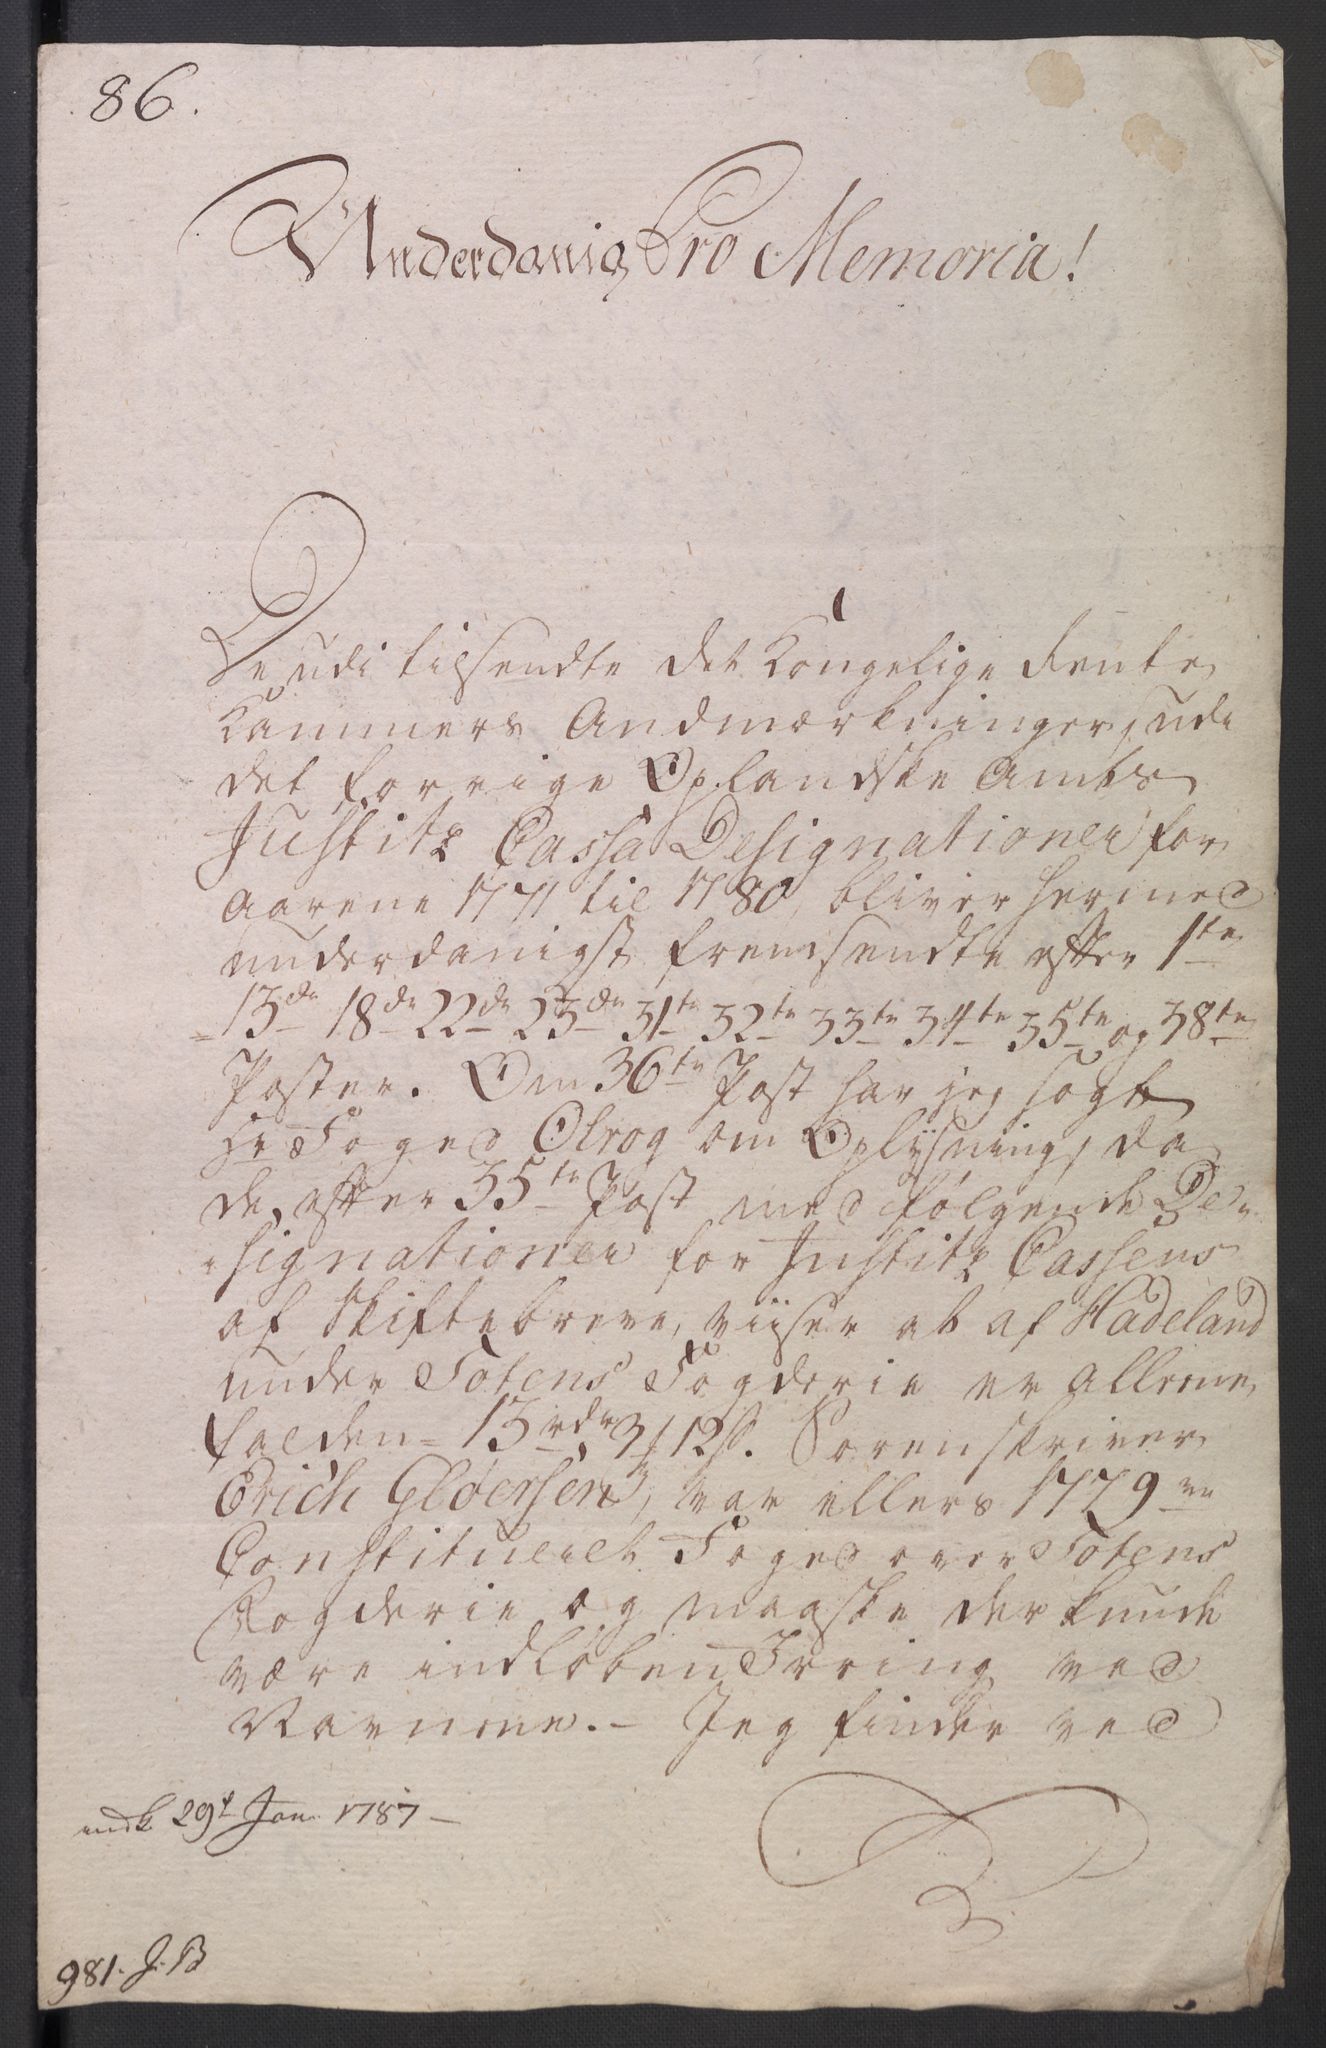 86.
Underdanig Pro Memoria!
De udi tilsendte det Kongelige Rente
Kammers Andmærkninger, udi
det forrige Oplandske Amts
Justitz Cassa Designationer for
Aarene 1771 til 1780, bliver hermed
underdanigst fremsendte efter 1te
13de 18de 22de 23de 31te 32te 33te 34te 35te og 38te
Poster. Om 36te Post har jeg søgt
Hr Foged Olrog om Oplysning, da
de, efter 35te Post med følgende De-
signationer for Justitz Cassens
af Skiftebreve, viiser at af Hadeland
under Totens Fogderie er alleene
falden 13 rdr 3 12 s. Sorenskriver
Erich Gløersen, var ellers 1779 
Constitueret Foged over Totens
Fogderie og maaske der kunde
være indløben Irring ved
Navnene. - Jeg finder ved
indk 29t Jan 1787 -
981. J. B